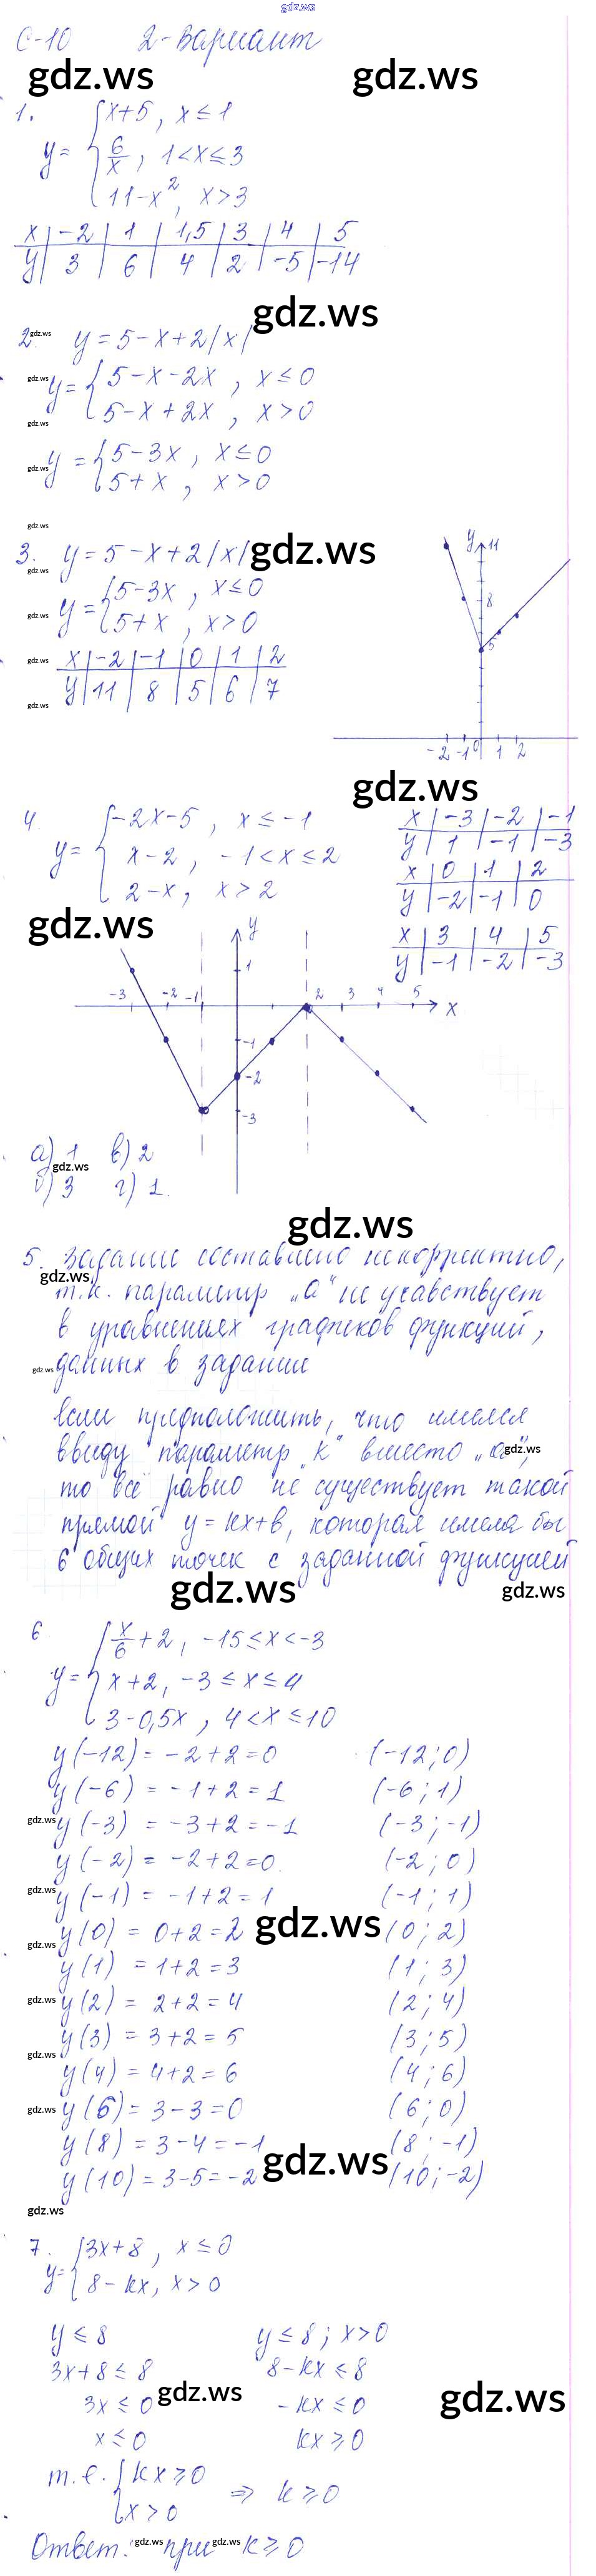 gdz.ws
С-10 2-Вариант
gdz.ws gdz.ws
1. y = { x+5, x ≤ 1
6/x, 1 < x ≤ 3
11-x², x > 3
x | -2 | 1 | 1,5 | 3 | 4 | 5
y | 3 | 6 | 4 | 2 | -5 | -14
gdz.ws
2. y = 5-x+2|x|
y = { 5-x-2x, x ≤ 0
5-x+2x, x > 0
y = { 5-3x, x ≤ 0
5+x, x > 0
gdz.ws
3. y = 5-x+2|x|
y = { 5-3x, x ≤ 0
5+x, x > 0
x | -2 | -1 | 0 | 1 | 2
y | 11 | 8 | 5 | 6 | 7
y 11
8
5
-2 -1 0 1 2
gdz.ws
4. y = { -2x-5, x ≤ -1
x-2, -1 < x ≤ 2
2-x, x > 2
x | -3 | -2 | -1
y | 1 | -1 | -3
x | 0 | 1 | 2
y | -2 | -1 | 0
x | 3 | 4 | 5
y | -1 | -2 | -3
gdz.ws
y
1
-3 -2 -1 2 3 4 5 x
-1
-2
-3
а) 1 в) 2
б) 3 г) 1.
gdz.ws
5. Задание составлено некорректно,
т.к. параметр „а" не учавствует
в уравнениях графиков функций,
данных в задании
если предположить, что имелся
ввиду параметр „k" вместо „а",
то всё равно не существует такой
прямой y = kx+b, которая имела бы
6 общих точек с заданной функцией
gdz.ws gdz.ws
6 y = { x/6+2, -15 ≤ x < -3
x+2, -3 ≤ x ≤ 4
3-0,5x, 4 < x ≤ 10
y(-12) = -2+2 = 0 (-12; 0)
y(-6) = -1+2 = 1 (-6; 1)
y(-3) = -3+2 = -1 (-3; -1)
y(-2) = -2+2 = 0. (-2; 0)
y(-1) = -1+2 = 1 (-1; 1)
y(0) = 0+2 = 2 gdz.ws (0; 2)
y(1) = 1+2 = 3 (1; 3)
y(2) = 2+2 = 4 (2; 4)
y(3) = 3+2 = 5 (3; 5)
y(4) = 4+2 = 6 (4; 6)
y(6) = 3-3 = 0 (6; 0)
y(8) = 3-4 = -1 (8; -1)
y(10) = 3-5 = -2 gdz.ws (10; -2)
gdz.ws
7. y = { 3x+8, x ≤ 0
8-kx, x > 0
y ≤ 8 y ≤ 8; x > 0
3x+8 ≤ 8 8-kx ≤ 8
3x ≤ 0 gdz.ws -kx ≤ 0 gdz.ws
x ≤ 0 kx ≥ 0
т.е. { kx ≥ 0
x > 0 ⇒ k ≥ 0
Ответ: при k ≥ 0